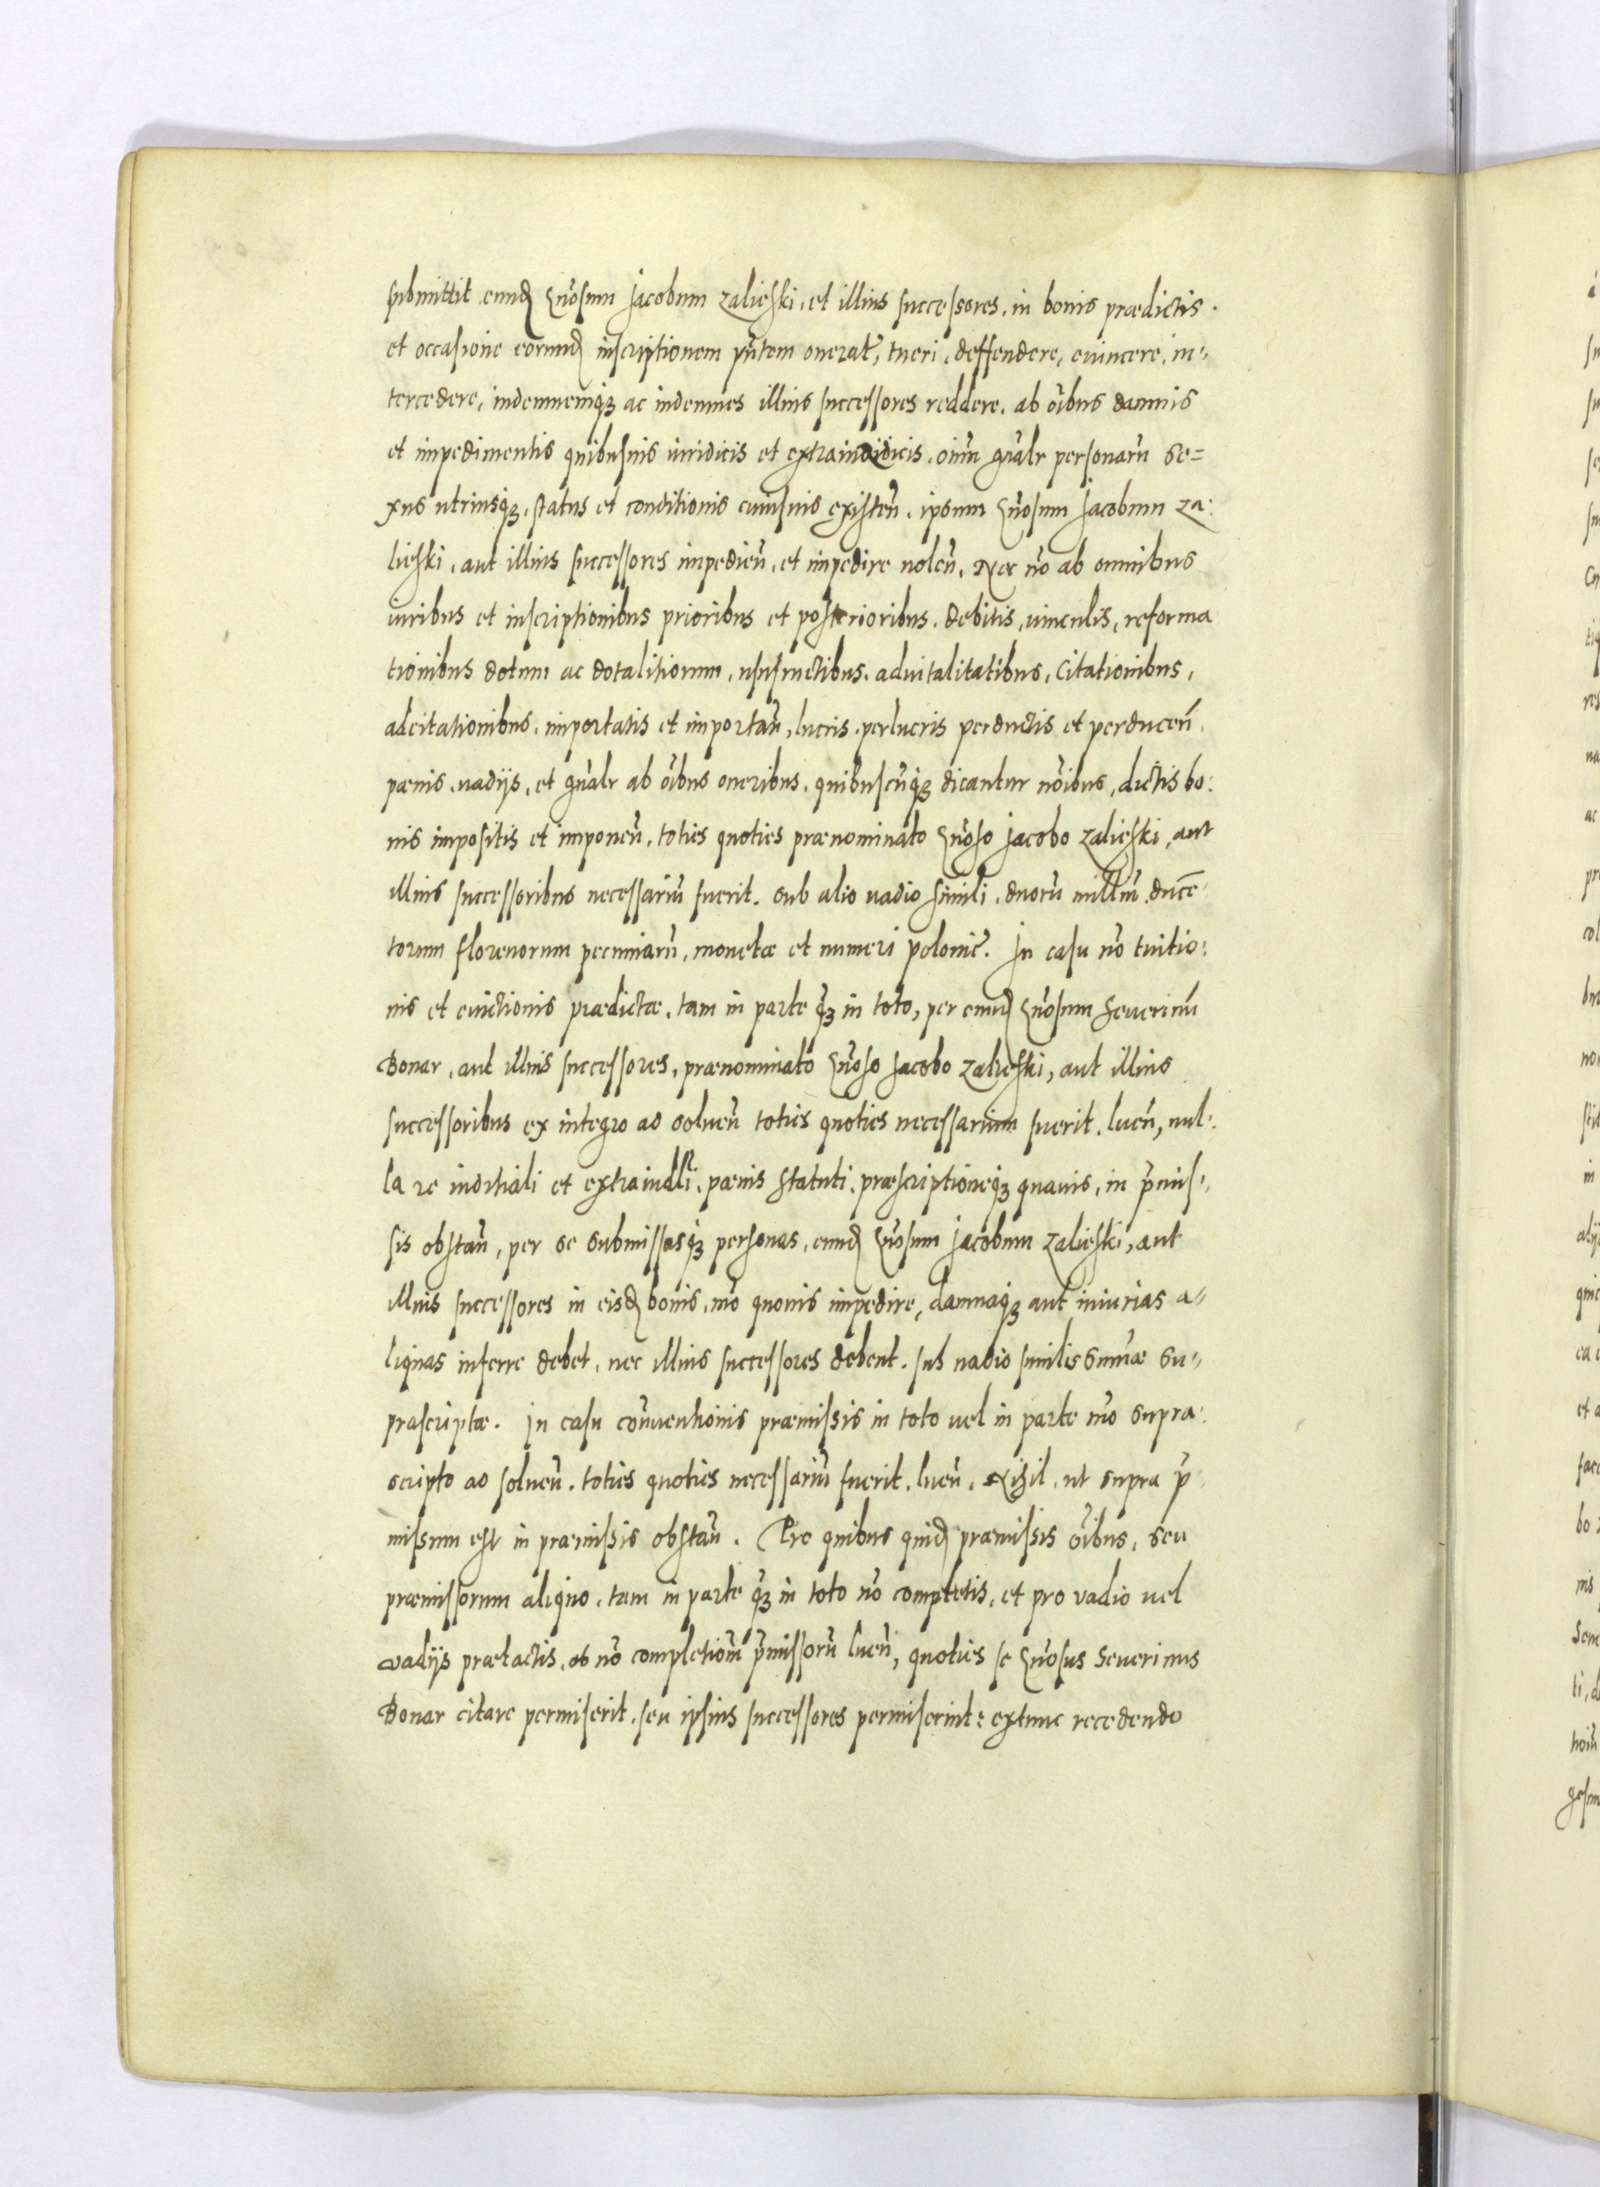 submittit eund G͞nosum Jacobum Zalieski, et illius successores, in bonis prædictis.
et occasione eorund inscriptionem pn̄tem onerat̄, tueri, deffendere, euincere, in-
tercedere, indemnemqȝ ac indemnes illius successores reddere, ab oībus damnis
et impedimentis quibusuis iuridicis et extraiudicis, oīm gn̄alr personarū se=
xus utriusqȝ, status et conditionis cuiusuis existen̄. ipsum G͞nosum Jacobum Za:
lieski, aut illius successores impedien̄, et impedire uolen̄. Nec nō ab omnibus
iuribus et inscriptionibus prioribus et posterioribus. debitis, uinculis, reforma
tionibus dotum ac dotalitiorum, ususfructibus. aduitalitatibus, Citationibus,
adcitationibus. importatis et importan̄, lucris. perlucris perductis et perducen̄.
pænis. uadijs, et gn̄alr ab oībus oneribus. quibuscūqȝ dicantur nōibus, dictis bo:
nis impositis et imponen̄, toties quoties prænominato G͞noso Jacobo Zalieski, aut
illius successoribus necessariū fuerit. sub alio uadio simili, duorū milliū ducē
torum florenorum pecuniarū, monetæ et numeri polonic̄. In casu nō tuitio:
nis et euictionis prædictæ. tam in parte q̄ȝ in toto, per eund G͞nosum Seuerinū
Bonar, aut illius successores, prænominato G͞noso Jacobo Zalieski, aut illius
successoribus ex integro ad soluen̄ toties quoties necessarium fuerit. luen̄, nul:
la re et pænis statuti. præscriptioneqȝ quauis, in p̄mis-
sis obstan̄, per se submissasqȝ personas, eund G͞nosum Jacobum Zalieski, aut
illius successores in eisd bonis, mō quouis impedire, damnaqȝ aut iniurias a-
liquas inferre debet, nec illius successores debent. sub uadio similis sum̄æ su-
prascriptæ. In casu cōnuentionis præmissis in toto uel in parte mō supra:
scripto ad soluen̄. toties quoties necessariū fuerit. luen̄. Nihil, ut supra p̄
missum est in præmissis obstan̄. Pro quibus quid præmissis oībus, seu
præmissorum aliquo, tam in parte q̄ȝ in toto nō completis, et pro vadio uel
vadijs prætactis, ob nō completiōm p̄missorū luen̄, quoties se G͞nosus Seuerinus
Bonar citare permiserit. seu ipsius successores permiserint: extunc recedendo